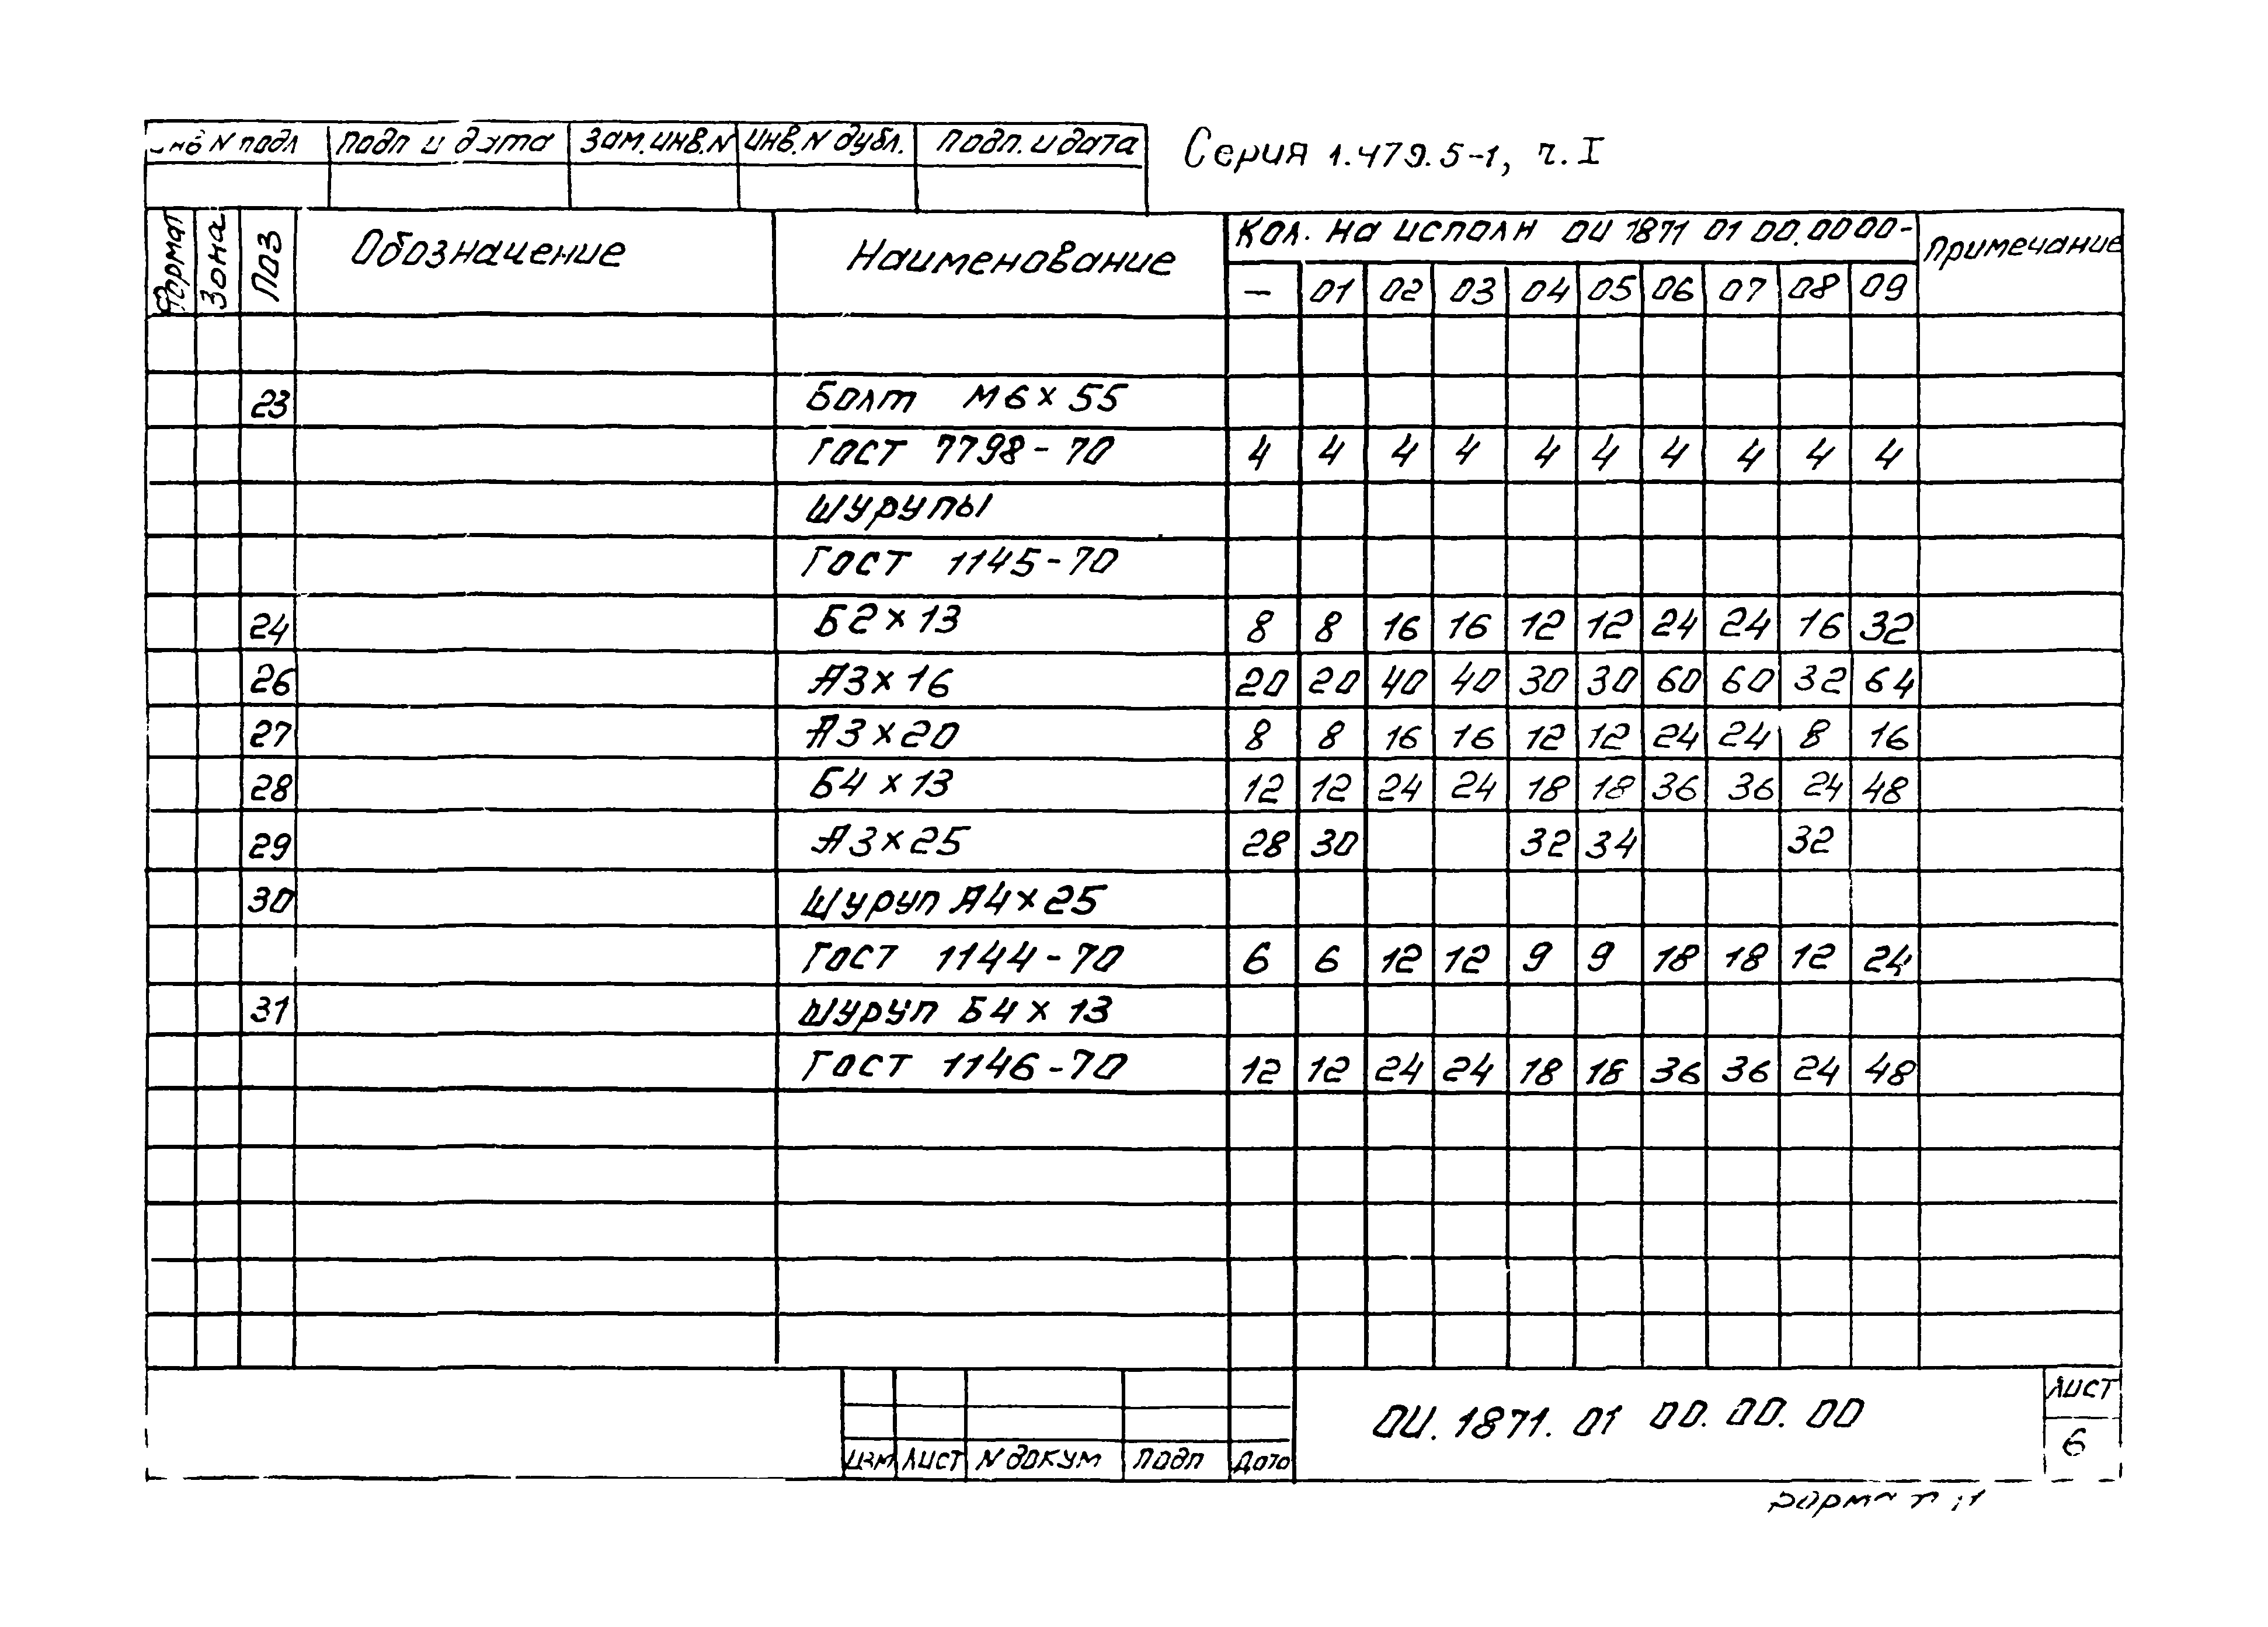 инв N подл Подп и дата Зам.инв.N Инв.N дубл. Подп. и дата Серия 1.479.5-1, ч.I
Формат Зона Поз Обозначение Наименование Кол. на исполн ОИ 1871 01 00.0000- Примечание
— 01 02 03 04 05 06 07 08 09
23 Болт М6×55
ГОСТ 7798-70 4 4 4 4 4 4 4 4 4 4
Шурупы
ГОСТ 1145-70
24 Б2×13 8 8 16 16 12 12 24 24 16 32
26 А3×16 20 20 40 40 30 30 60 60 32 64
27 А3×20 8 8 16 16 12 12 24 24 8 16
28 Б4×13 12 12 24 24 18 18 36 36 24 48
29 А3×25 28 30 32 34 32
30 Шуруп А4×25
ГОСТ 1144-70 6 6 12 12 9 9 18 18 12 24
31 Шуруп Б4×13
ГОСТ 1146-70 12 12 24 24 18 18 36 36 24 48
Изм Лист N докум Подп Дата ОИ.1871.01 00.00.00 Лист
6